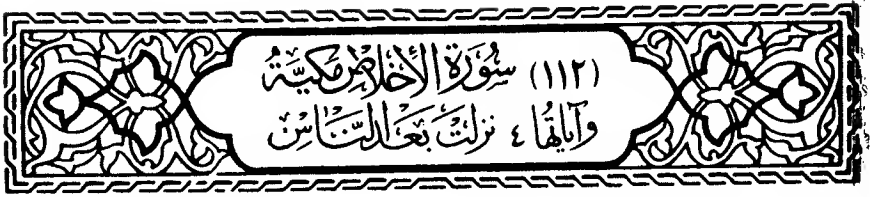 (١١٢) سُورَة الإِخْلَاصِ مَكيَّة
وَآيَاتُهَا ٤ نَزَلَتْ بَعْدَ النَّاسِ